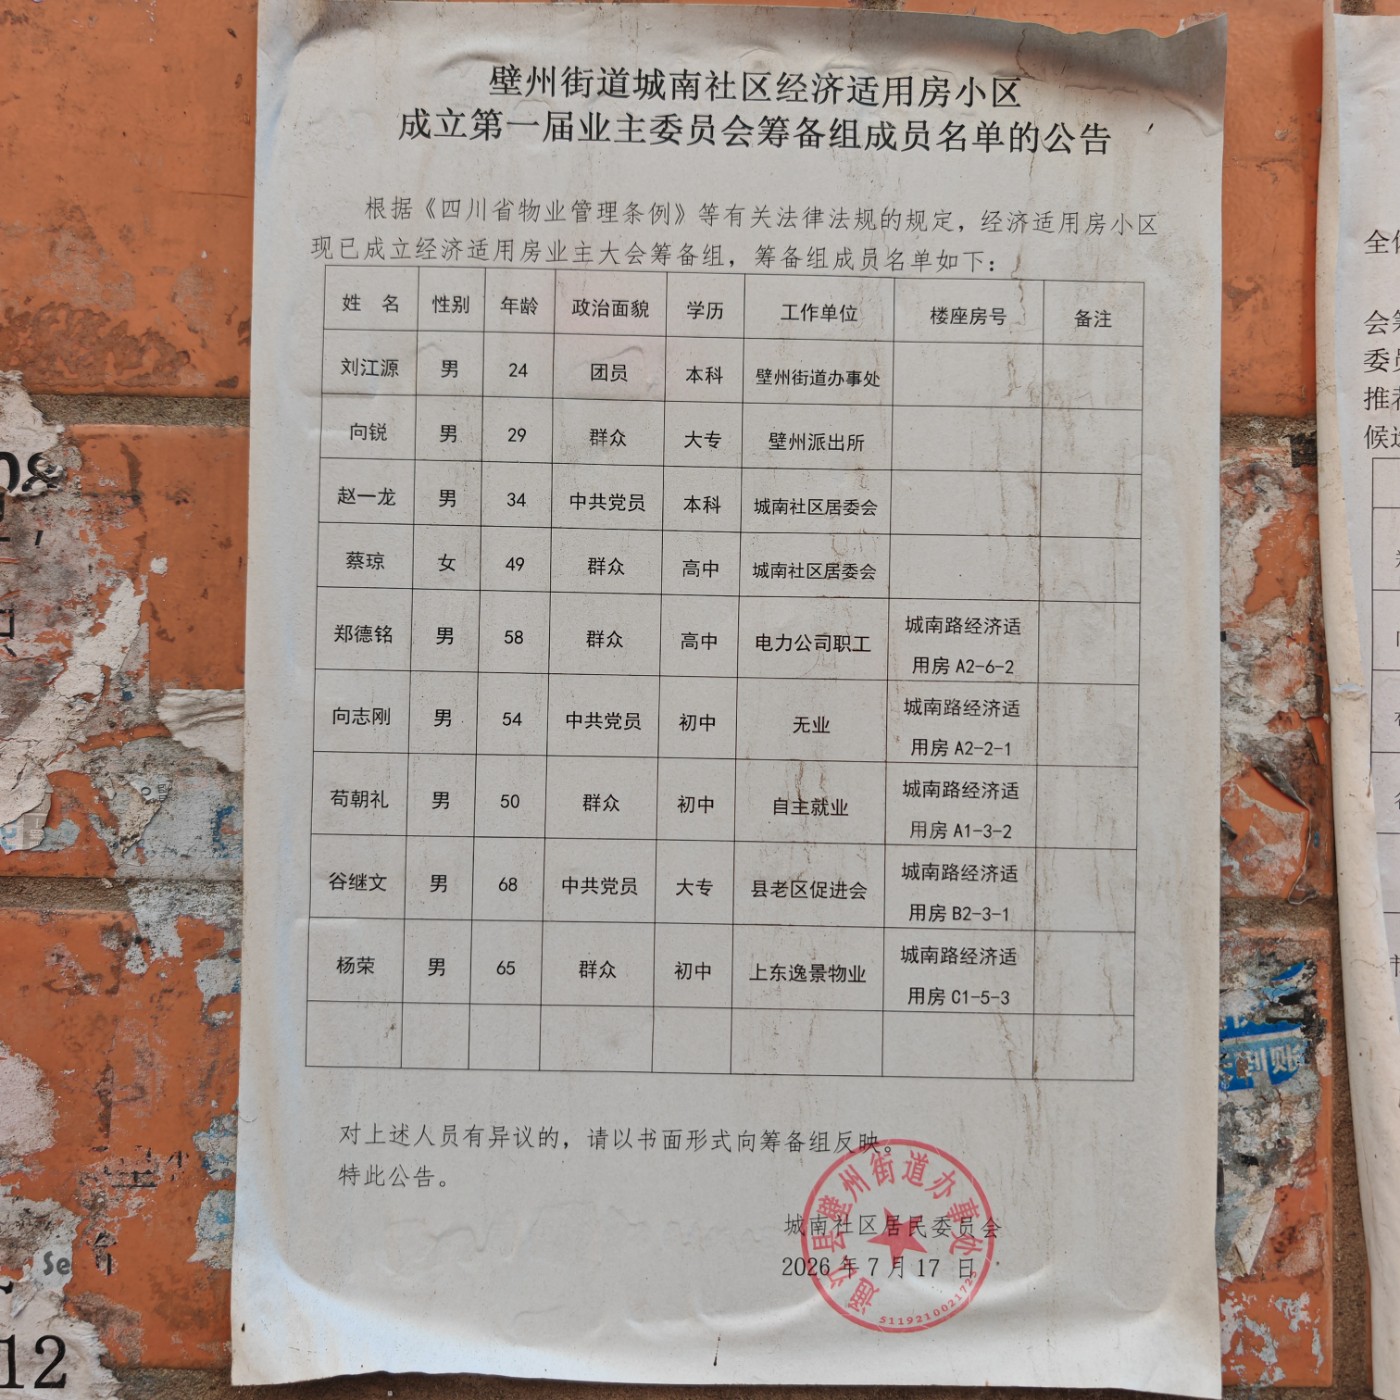 壁州街道城南社区经济适用房小区
成立第一届业主委员会筹备组成员名单的公告
根据《四川省物业管理条例》等有关法律法规的规定，经济适用房小区
现已成立经济适用房业主大会筹备组，筹备组成员名单如下：
姓 名 性别 年龄 政治面貌 学历 工作单位 楼座房号 备注
刘江源 男 24 团员 本科 壁州街道办事处
向锐 男 29 群众 大专 壁州派出所
赵一龙 男 34 中共党员 本科 城南社区居委会
蔡琼 女 49 群众 高中 城南社区居委会
郑德铭 男 58 群众 高中 电力公司职工 城南路经济适
用房 A2-6-2
向志刚 男 54 中共党员 初中 无业 城南路经济适
用房 A2-2-1
苟朝礼 男 50 群众 初中 自主就业 城南路经济适
用房 A1-3-2
谷继文 男 68 中共党员 大专 县老区促进会 城南路经济适
用房 B2-3-1
杨荣 男 65 群众 初中 上东逸景物业 城南路经济适
用房 C1-5-3
对上述人员有异议的，请以书面形式向筹备组反映。
特此公告。
城南社区居民委员会
2026 年 7 月 17 日
通江县壁州街道办事处
5119210021725
全体
会筹
委员
推荐
候选
08
Se
12
到账